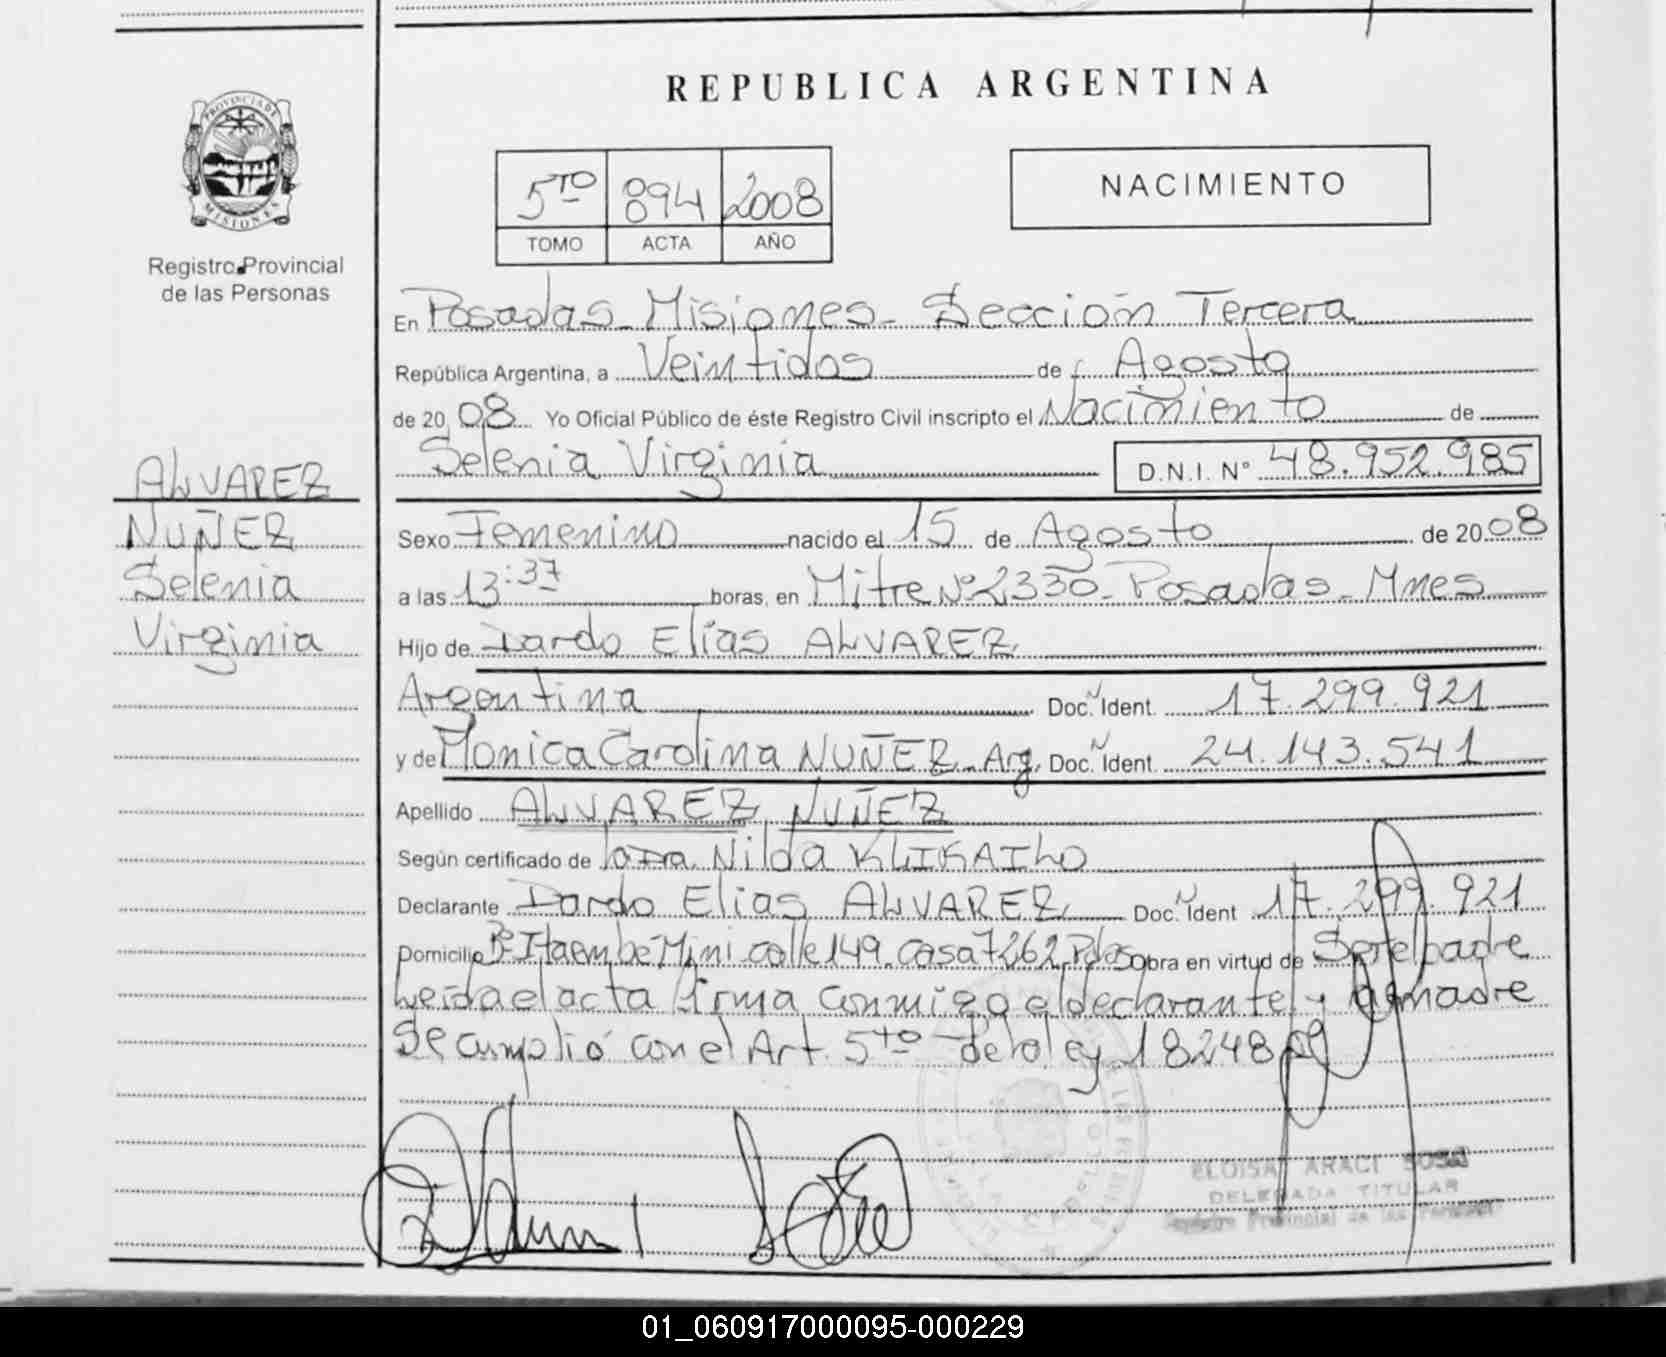 REPUBLICA ARGENTINA
PROVINCIA DE
MISIONES
Registro Provincial
de las Personas
5TO 894 2008
TOMO ACTA AÑO
NACIMIENTO
En Posadas Misiones- Sección Tercera
República Argentina, a Veintidos de Agosto
de 2008 Yo Oficial Público de éste Registro Civil inscripto el Nacimiento de
Selenia Virginia D.N.I. N° 48.952.985
ALVAREZ
NUÑEZ
Selenia
Virginia
Sexo Femenino nacido el 15 de Agosto de 2008
a las 13:37 boras, en Mitre Nº 2330- Posadas- Mnes
Hijo de Dardo Elías ALVAREZ
Argentina Doc. Ident. 17.299.921
y de Monica Carolina NUÑEZ- Arg. Doc. Ident. 24.143.541
Apellido ALVAREZ NUÑEZ
Según certificado de la Dra. Nilda
Declarante Dardo Elias ALVAREZ Doc. Ident 17.299.921
Domicilio Bº Itaembé Mini calle 149 casa 7262 Pdas Obra en virtud de Ser el padre
Leída el acta firma conmigo el declarante y la madre
Se cumplió con el Art. 5to de la ley 18248
ELOISA ARACI SOSA
DELEGADA TITULAR
Registro Provincial de las Personas
01_060917000095-000229